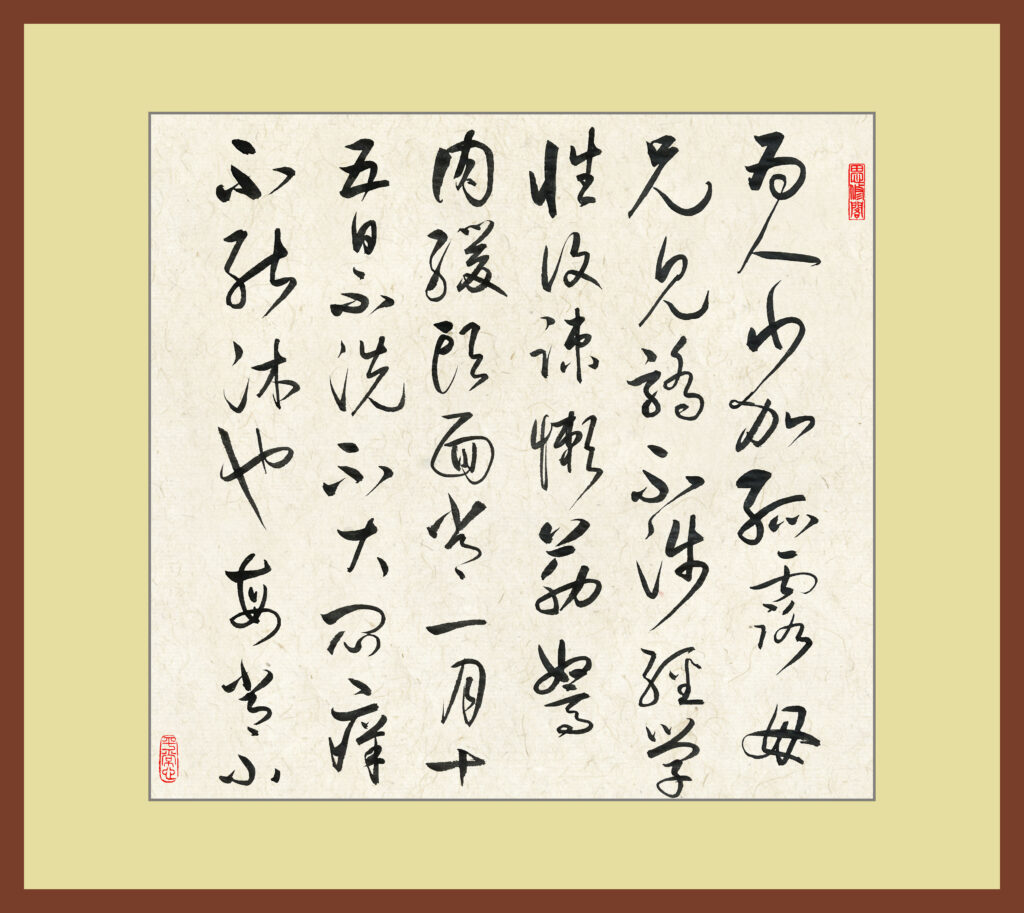 思修閣
為人少加孤露母
兄見驕不涉經學
性復疎懶筋駑
肉緩頭面常一月十
五日不洗不大悶癢
不能沐也每常小
平常心